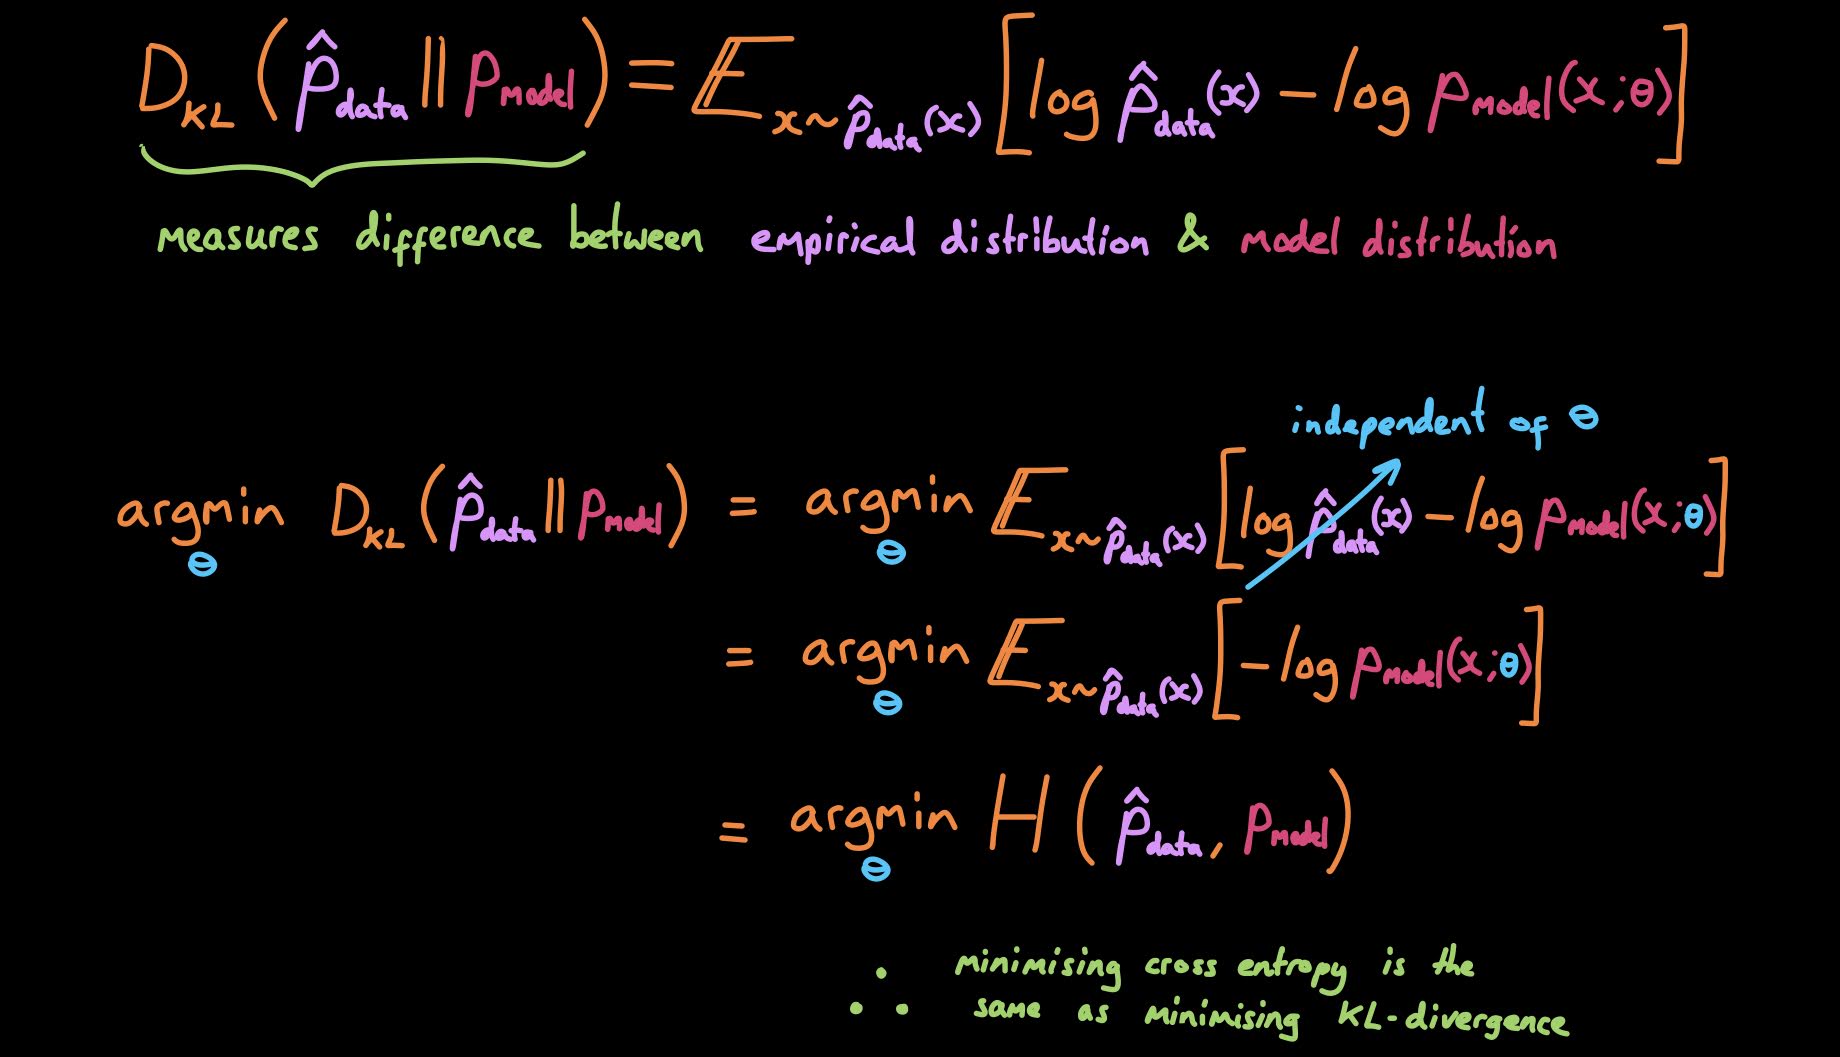 D_KL ( p̂_data || p_model ) = E_x~p̂_data(x) [ log p̂_data(x) − log p_model(x;θ) ]
measures difference between empirical distribution & model distribution
independent of θ
argmin_θ D_KL ( p̂_data || p_model ) = argmin_θ E_x~p̂_data(x) [ log p̂_data(x) − log p_model(x;θ) ]
= argmin_θ E_x~p̂_data(x) [ − log p_model(x;θ) ]
= argmin_θ H ( p̂_data , p_model )
∴ minimising cross entropy is the
same as minimising KL-divergence